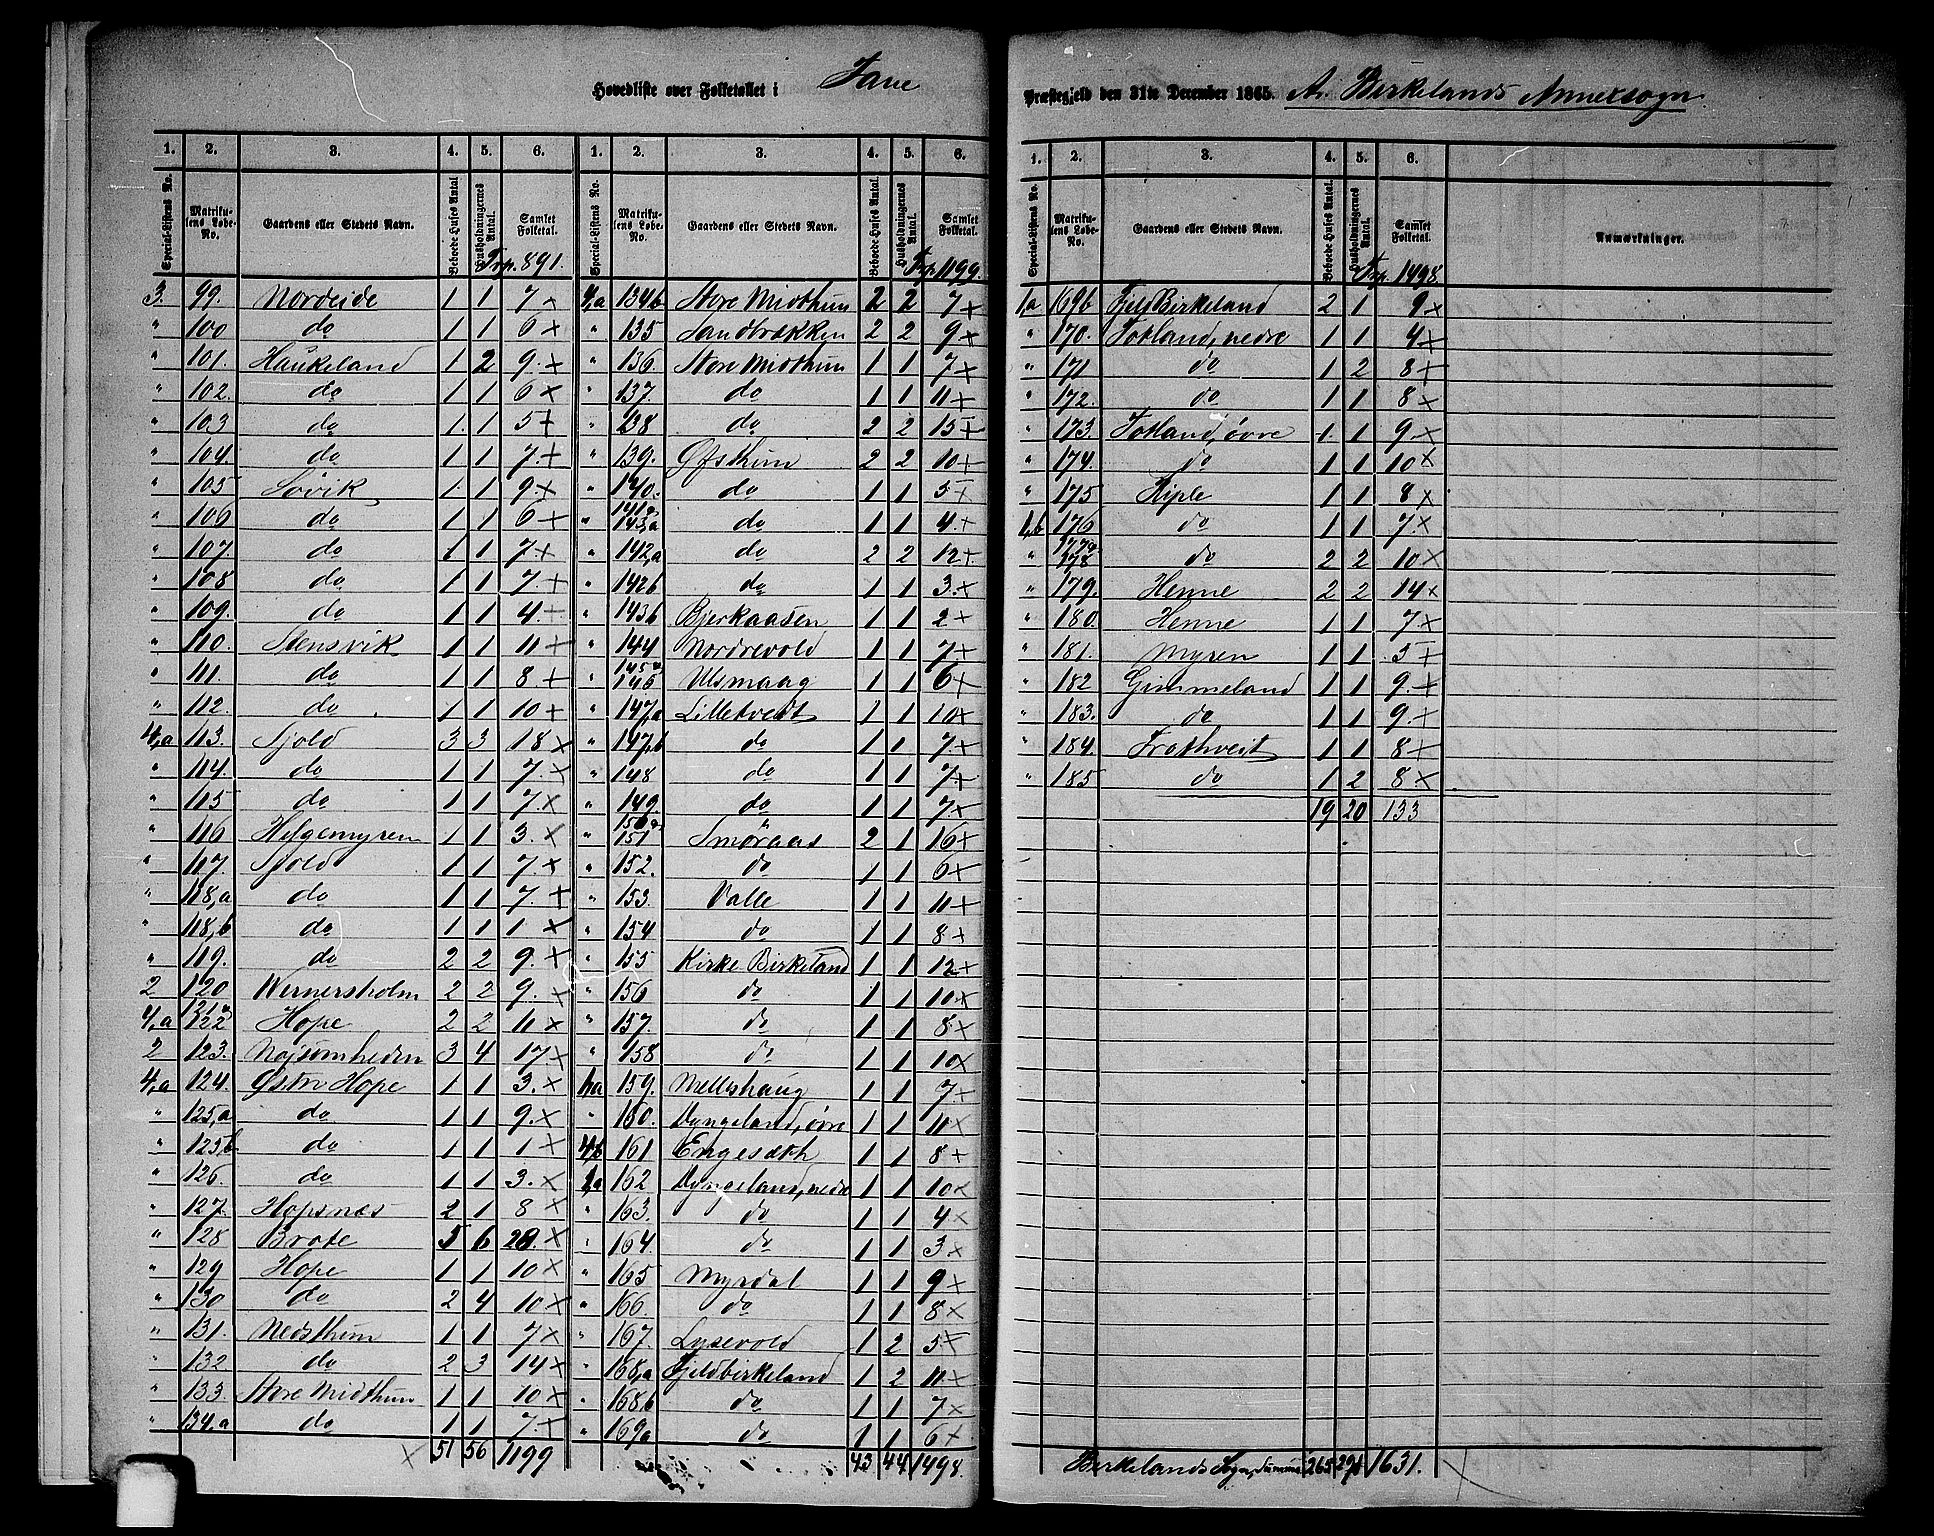 Hovedliste over Folketallet i Fane Præstegjeld den 31te December 1865. A. Birkelands Annexsogn.
1. 2. 3. 4. 5. 6. 1. 2. 3. 4. 5. 6.
Special-Listens No. Matrikulens Løbe-No. Gaardens eller Stedets Navn. Beboede Huses Antal. Husholdningernes Antal. Samlet Folketal. Special-Listens No. Matrikulens Løbe-No. Gaardens eller Stedets Navn. Beboede Huses Antal. Husholdningernes Antal. Samlet Folketal.
Trp. 891. Trp. 1199.
3. 99. Nordeide 1 1 7 × 4,a 134b Store Midthun 2 2 7 +
" 100 do 1 1 6 × " 135 Sandbrækken 2 2 9 ×
" 101. Haukeland 1 2 9. × " 136. Store Midthun 1 1 7 ×
" 102. do 1 1 6 × " 137. do 1 1 11 +
" 103 do 1 1 5 + " 138 do 2 2 15 +
" 104. do 1 1 7. + " 139. Øfsthun 2 2 10 +
" 105 Søvik 1 1 9. × " 140. do 1 1 5 ×
" 106 do 1 1 6 + " 141a 143a do 1 1 4 +
" 107. do 1 1 7 + " 142,a do 2 2 12 +
" 108 do 1 1 7. + " 142b do 1 1 3. ×
" 109. do 1 1 4. + " 143b Bjerkaasen 1 1 2 ×
" 110. Stensvik 1 1 11 + " 144 Nordrevold 1 1 7 +
" 111. do 1 1 8 + " 145a 146 Ulsmaag 1 1 6 +
" 112. do 1 1 10 + " 147,a Lilletvedt 1 1 10 ×
4,a 113. Sjold 3 3 18 × " 147,b do 1 1 7. ×
" 114. do 1 1 7. × " 148 do 1 1 7. +
" 115 do 1 1 7. × " 149. do 1 1 7. ×
" 116 Helgemyren 1 1 3. × " 150a 151 Smöraas 2 1 16 +
" 117. Sjold 1 1 7. × " 152. do 1 1 6 +
" 118,a do 1 1 7. + " 153. Valle 1 1 11 +
" 118,b do 1 1 1 × " 154 do 1 1 8 +
" 119. do 2 2 9. + " 155 Kirke Birkeland 1 1 12 +
2 120 Wernersholm 2 2 9. × " 156 do 1 1 10 ×
4,a 121a 122 Hope 2 2 11 × " 157. do 1 1 8 ×
2 123. Nøjsomheden 3 4 17 × " 158 do 1 1 10 ×
4,a 124. Østre Hope 1 1 3. × 1,a 159. Mellshaug 1 1 7 +
" 125,a do 1 1 9. × " 160. Dyngeland, øvre 1 1 11 ×
" 125,b do 1 1 1 × 4,b 161 Engesæth 1 1 8 +
" 126. do 1 1 3. × 1,a 162 Dyngeland, nedre 1 1 10 ×
" 127. Hopsnæs 2 1 8 × " 163. do 1 1 4 ×
" 128 Brote 5 6 28. × " 164. do 1 1 3 ×
" 129 Hope 1 1 10 × " 165 Myrdal 1 1 9 ×
" 130 do 2 4 10 × " 166. do 1 1 8 ×
" 131. Nedsthun 1 1 7 × " 167. Lysevold 1 2 5 +
" 132 do 2 3 14 × " 168,a Fjeldbirkeland 1 2 11 ×
" 133. Store Midthun 1 1 10 × " 168,b do 1 1 7 ×
" 134,a do 1 1 7. + " 169a do 1 1 6 ×
× 51 56 1199 43 44 1498.
1. 2. 3. 4. 5. 6.
Special-Listens No. Matrikulens Løbe-No. Gaardens eller Stedets Navn. Beboede Huses Antal. Husholdningernes Antal. Samlet Folketal. Anmærkninger.
Trp. 1498.
1a 169b Fjeld Birkeland 2 1 9 ×
" 170. Totland, nedre 1 1 4 +
" 171 do 1 2 8 +
" 172. do 1 1 8 ×
" 173. Totland, øvre 1 1 9 ×
" 174. do 1 1 10 ×
" 175 Kiple 1 1 8 ×
1,b 176 do 1 1 7. ×
" 177a 178 do 2 2 10 ×
" 179. Henne 2 2 14 ×
" 180. Henne 1 1 7 ×
" 181. Myren 1 1 5 +
" 182 Gimmeland 1 1 9. +
" 183. do 1 1 9. ×
" 184. Frotveit 1 1 8 +
" 185 do 1 2 8. ×
19 20 133
Birkelands Sogn, Summa 265 291 1631.